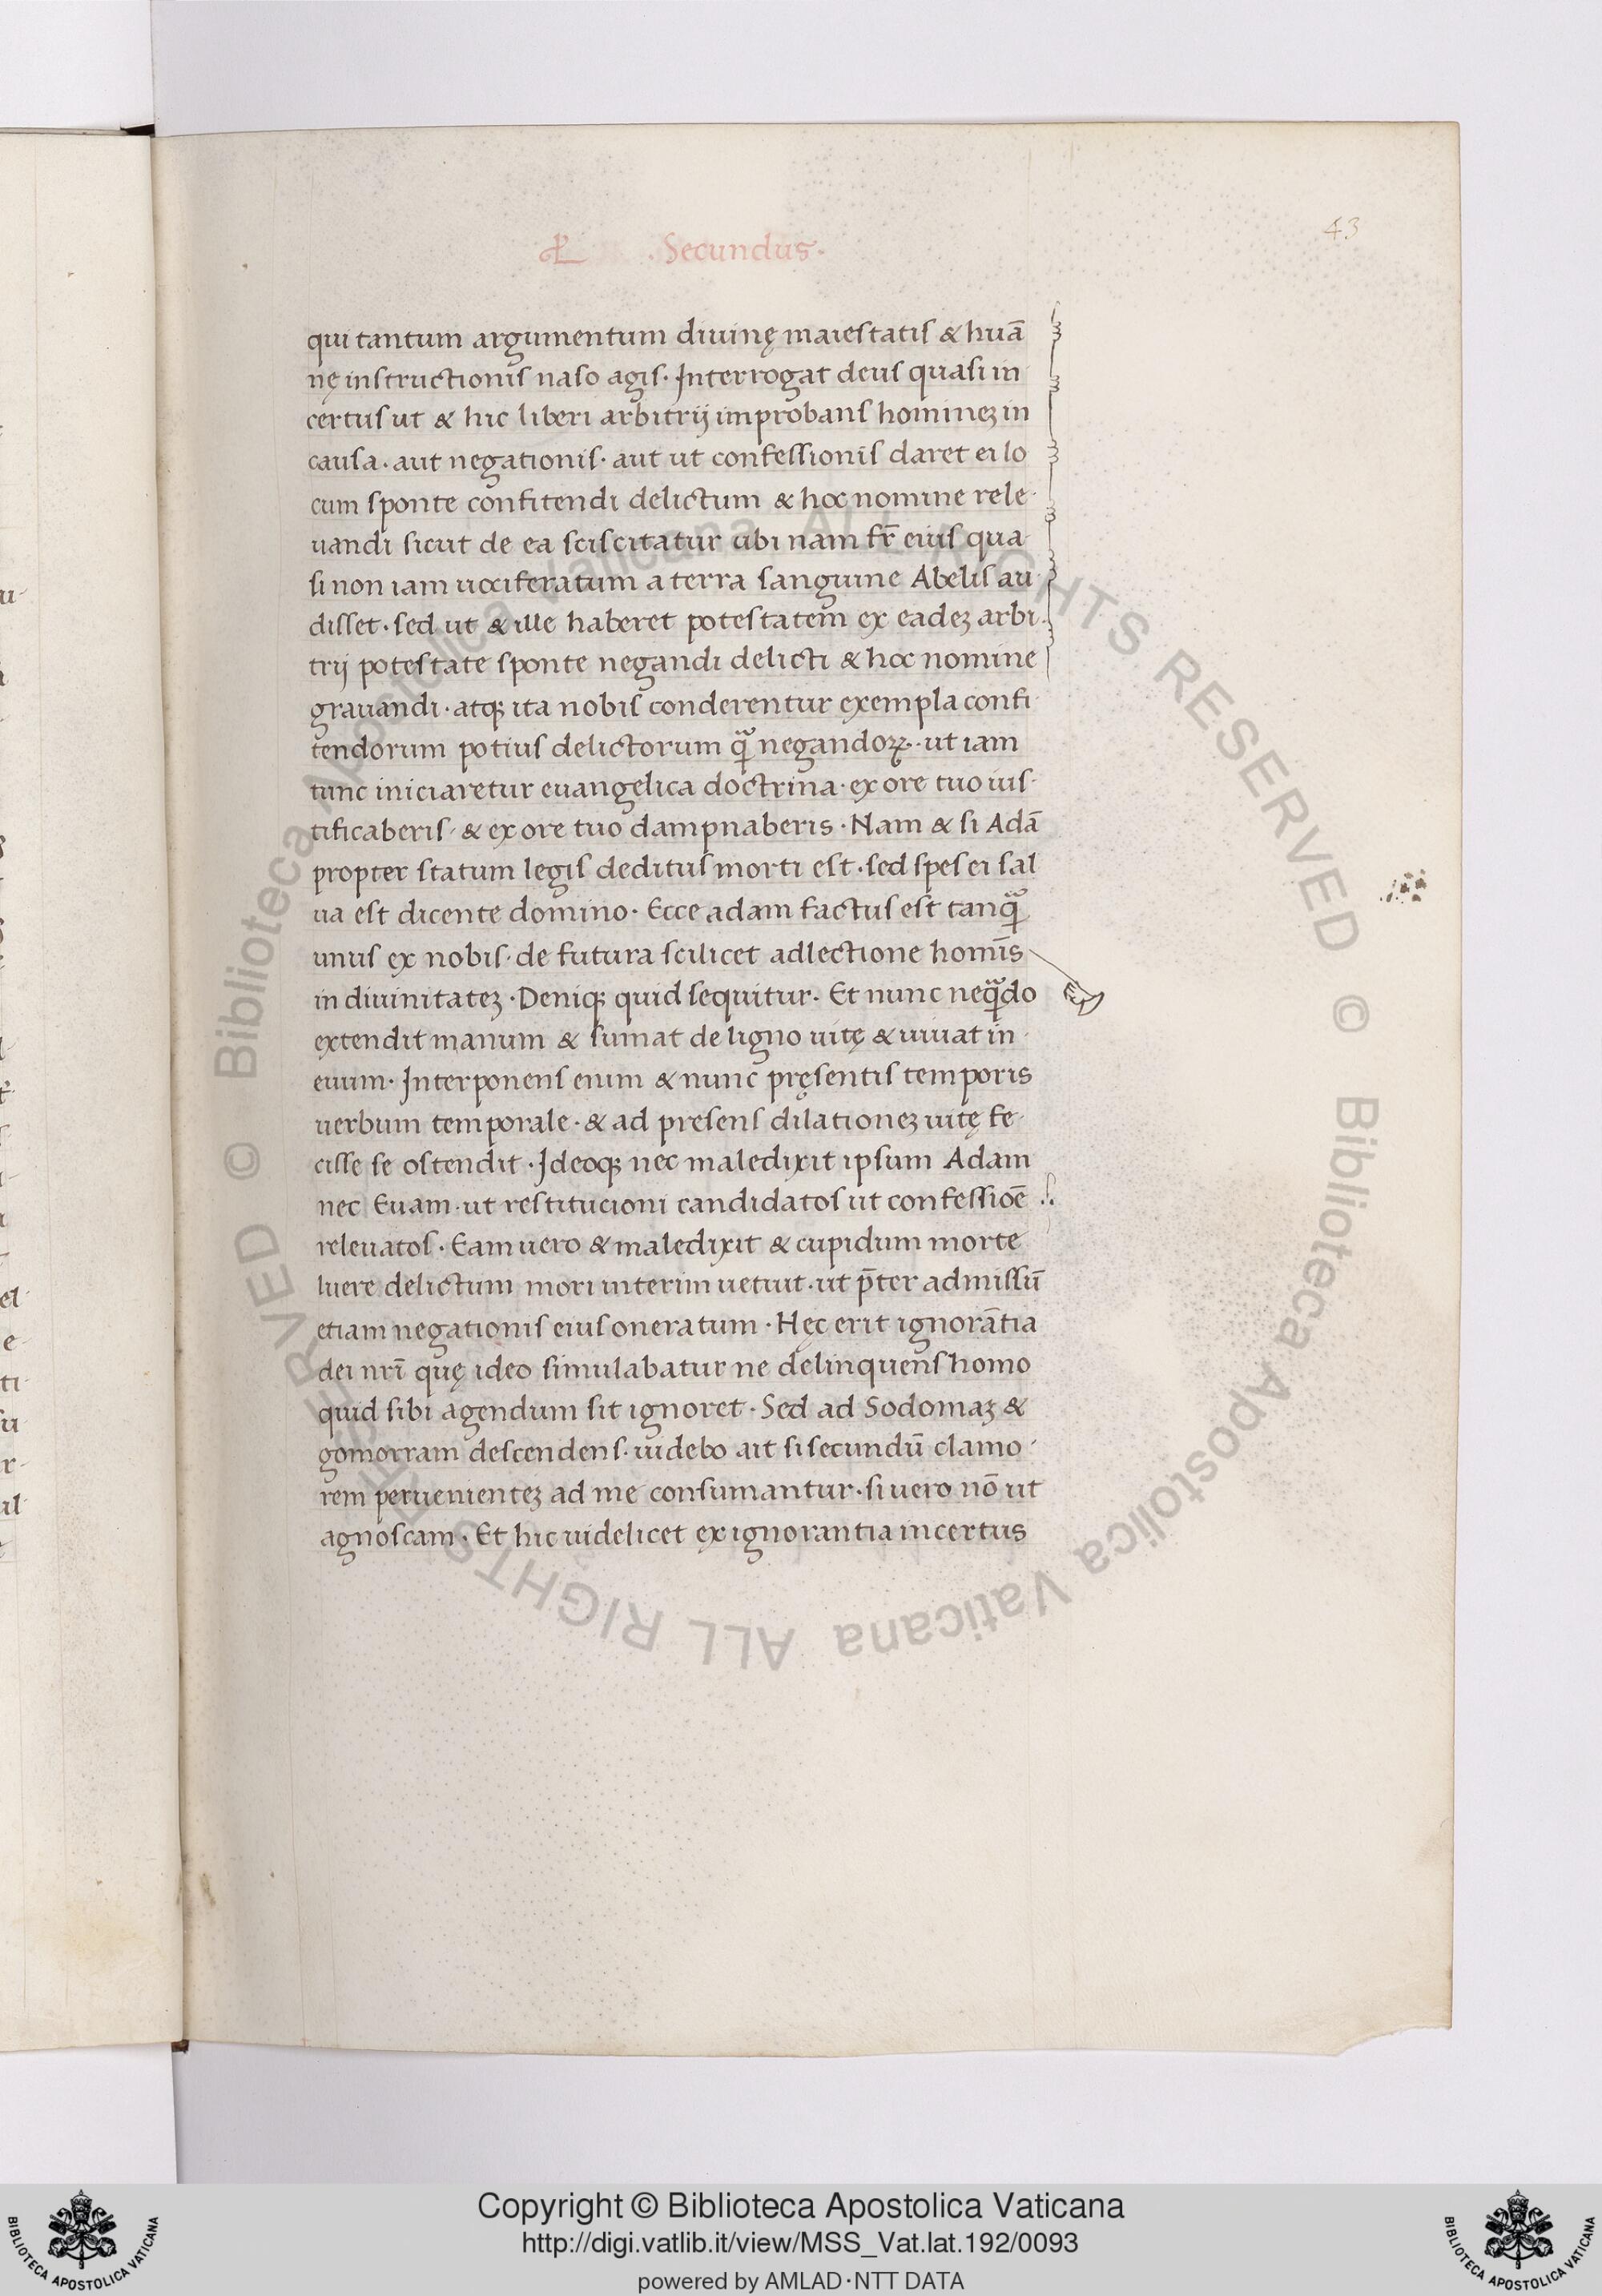 43
.Secundus.
qui tantum argumentum diuinę maiestatis & huā
nę instructionis naso agis. Interrogat deus quasi in
certus ut & hic liberi arbitrij improbans homineꝫ in
causa. aut negationis. aut ut confessionis daret ei lo
cum sponte confitendi delictum & hoc nomine rele-
uandi sicut de ea sciscitatur ubi nam fr̄ eius qua
si non iam uociferatum a terra sanguine Abelis au-
disset. sed ut & ille haberet potestatem ex eadeꝫ arbi-
trij potestate sponte negandi delicti & hoc nomine
grauandi. atqꝫ ita nobis conderentur exempla confi-
tendorum potius delictorum qͣꝫ negandoꝝ. ut iam
tunc iniciaretur euangelica doctrina. ex ore tuo ius-
tificaberis. & ex ore tuo dampnaberis. Nam & si Adā
propter statum legis deditus morti est. sed spes ei sal
ua est dicente domino. Ecce adam factus est tanqͣꝫ
unus ex nobis. de futura scilicet adlectione homīs
in diuinitateꝫ. Deniqꝫ quid sequitur. Et nunc neqͣꝫdo
extendit manum & sumat de ligno uitę & uiuat in-
euum. Interponens enim & nunc pręsentis temporis
uerbum temporale. & ad presens dilationeꝫ uitę fe-
cisse se ostendit. Ideoqꝫ nec maledixit ipsum Adam
nec Euam. ut restitucioni candidatos ut confessioē
releuatos. Eam uero & maledixit & cupidum morte
luere delictum mori interim uetuit. ut p̄ter admissū
etiam negationis eius oneratum. Hęc erit ignorātia
dei nrī quę ideo simulabatur ne delinquens homo
quid sibi agendum sit ignoret. Sed ad Sodomaꝫ &
gomorram descendens. uidebo ait si secundū clamo-
rem peruenienteꝫ ad me consumantur. si uero nō ut
agnoscam. Et hic uidelicet ex ignorantia incertus
© Biblioteca Apostolica Vaticana ALL RIGHTS RESERVED © Biblioteca Apostolica Vaticana ALL RIGHTS RESERVED
Copyright © Biblioteca Apostolica Vaticana
http://digi.vatlib.it/view/MSS_Vat.lat.192/0093
powered by AMLAD·NTT DATA
BIBLIOTECA APOSTOLICA VATICANA
BIBLIOTECA APOSTOLICA VATICANA